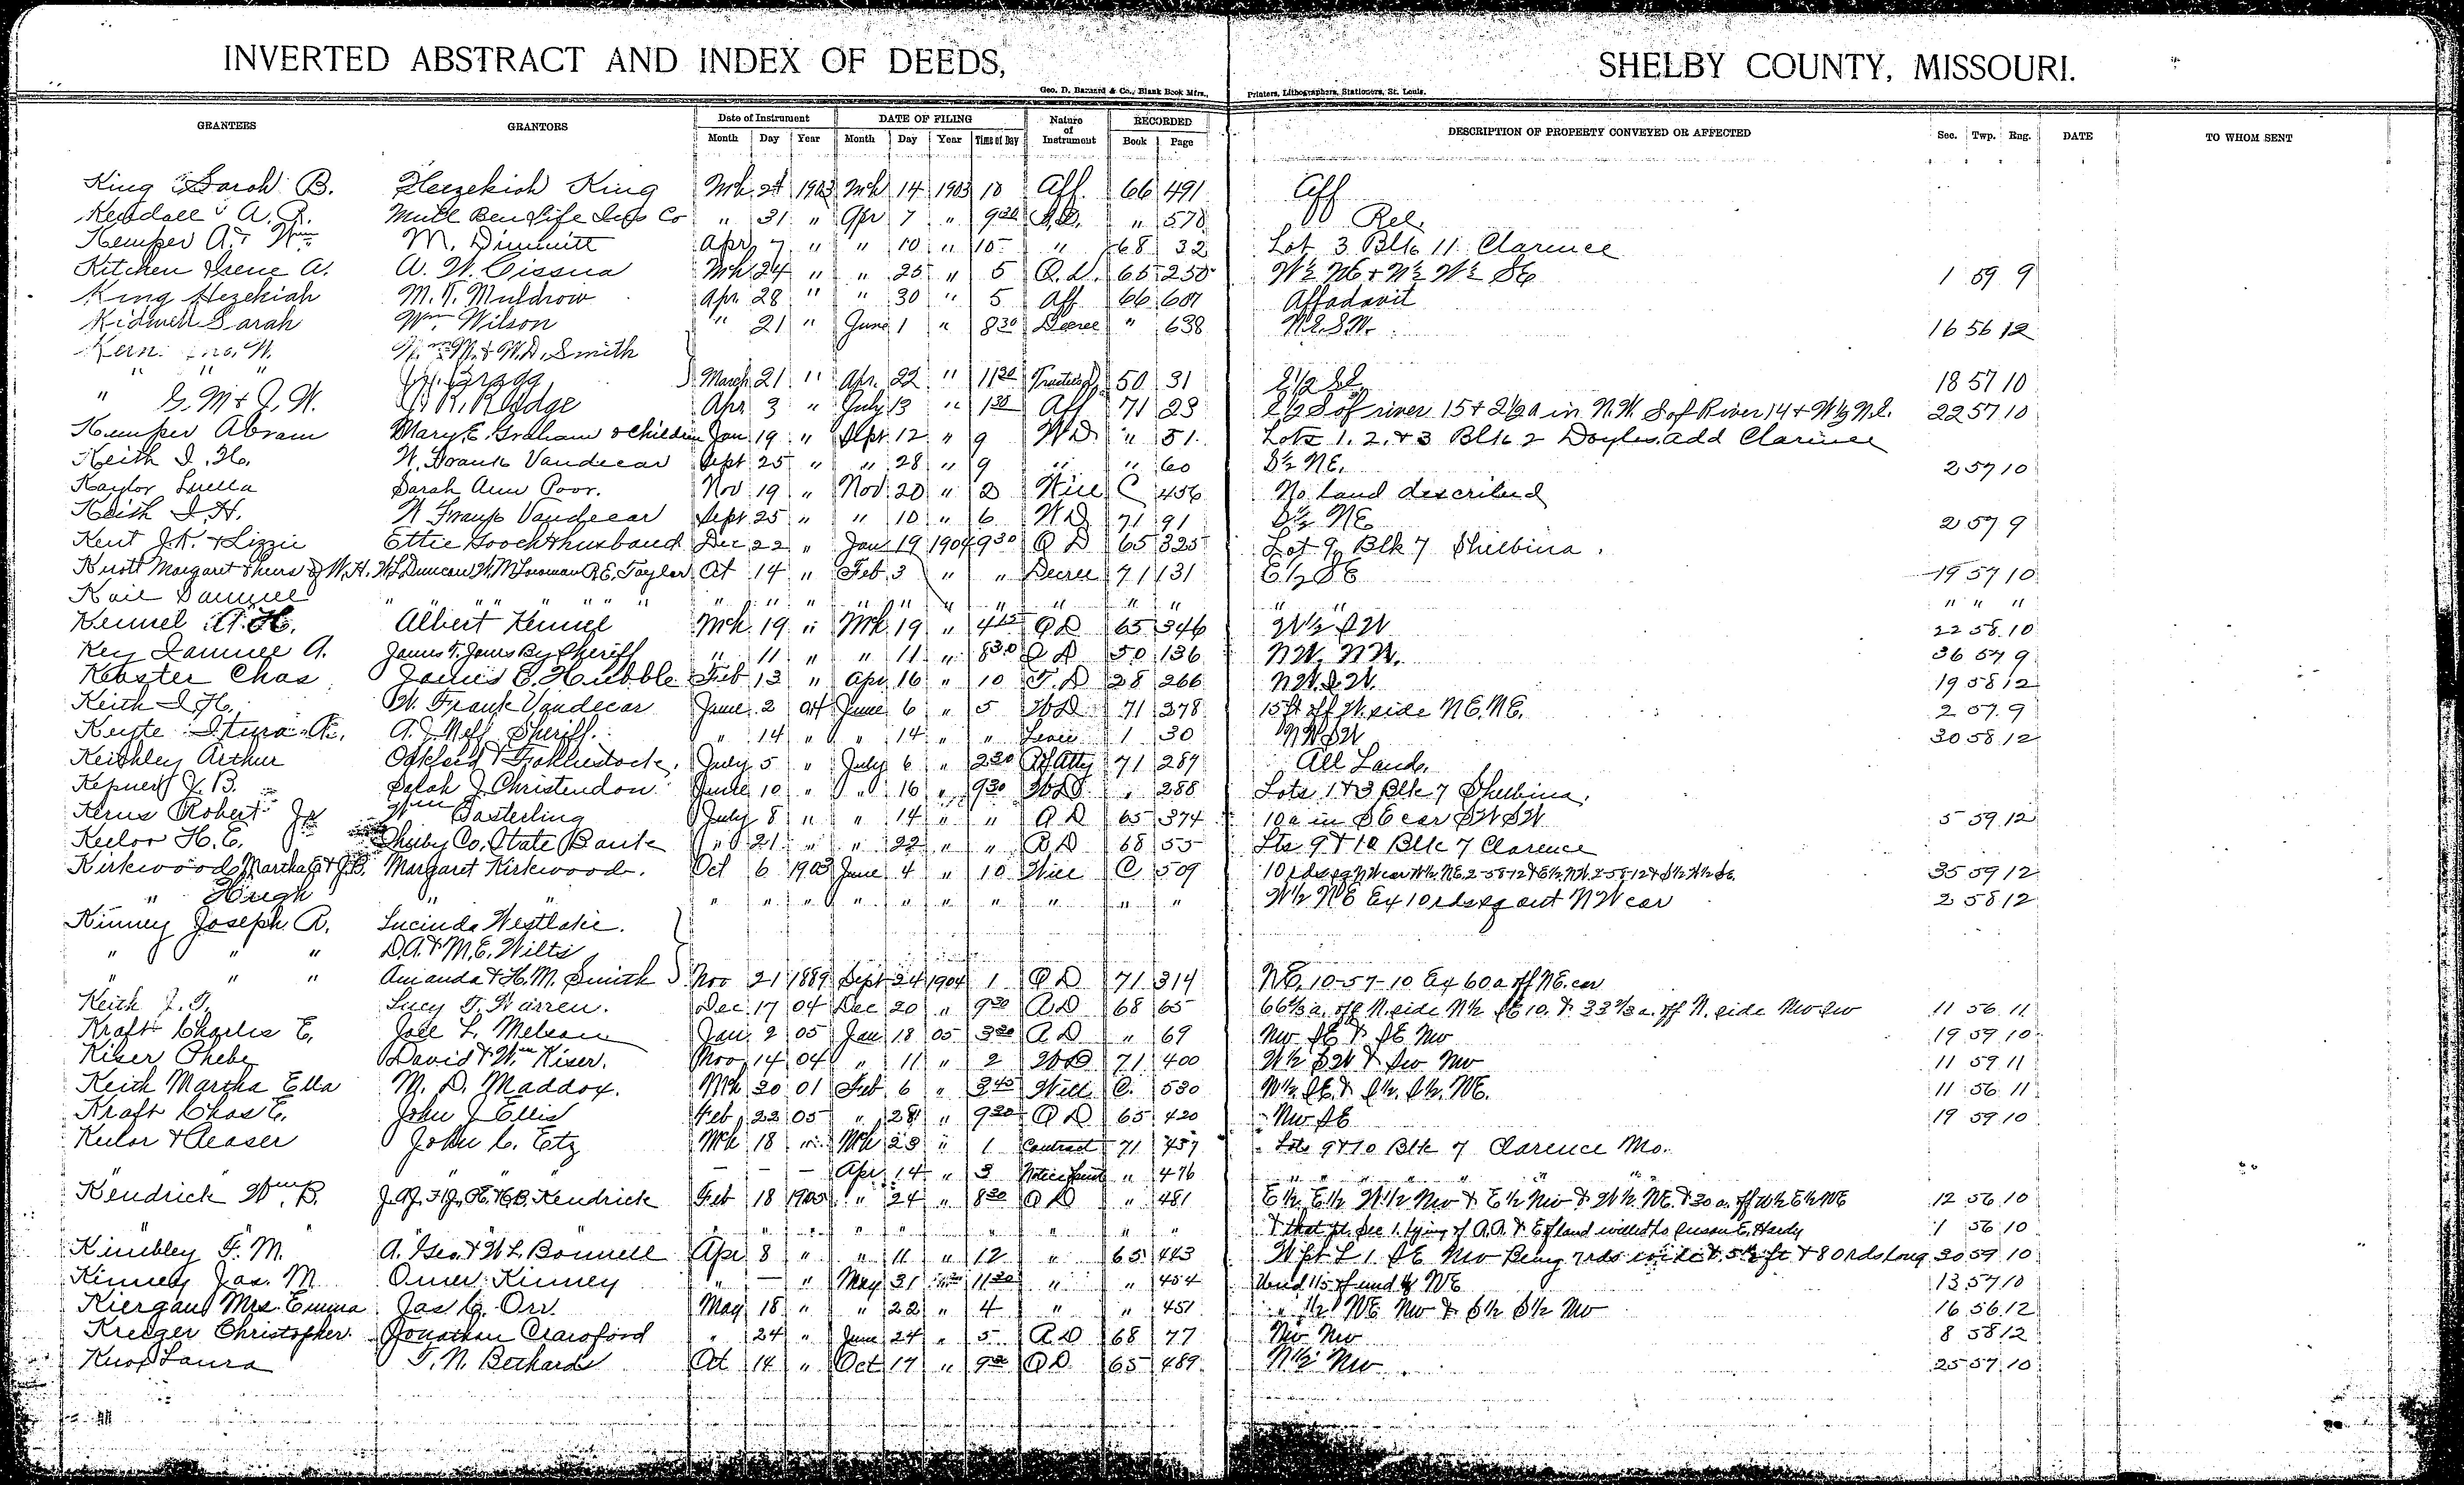 INVERTED ABSTRACT AND INDEX OF DEEDS, SHELBY COUNTY, MISSOURI.
Geo. D. Barnard & Co., Blank Book Mfrs., Printers, Lithographers, Stationers, St. Louis.
GRANTEES GRANTORS Date of Instrument DATE OF FILING Nature of Instrument RECORDED DESCRIPTION OF PROPERTY CONVEYED OR AFFECTED Sec. Twp. Rng. DATE TO WHOM SENT
Month Day Year Month Day Year Time of Day Book Page
King Sarah B. Hezekiah King Mch 1903 Mch 14 1903 10 Aff. 66 491 Aff
Kendall A. R. Mutl Ben Life Ins Co " 31 " Apr 7 " 9 30 " 578 Rel.
Kemper A. + Wm M. Dimmitt Apr 7 " " 10 " 10 " 68 32 Lot 3 Blk 11 Clarence
Kitchen Irene A. A. W. Cissna Mch 24 " " 25 " 5 Q.D. 65 250 W½ NE + N½ W½ SE 1 59 9
King Hezekiah M. T. Muldrow Apr. 28 " " 30 " 5 Aff 66 607 Affadavit
Kidwell Sarah Wm Wilson " 21 " June 1 " 8 30 Decree " 638 16 56 12
Kern Jno. W. Wm M. + W.D. Smith
" " " Gragg March 21 " Apr. 22 " 11 30 Trustees D 50 31 E1/2 SE 18 57 10
" G. M + J. W. R. Ridge Apr 3 " July 13 " 1 30 Aff 71 23 E½ S of river 15 + 2½a in N.W. S of River 14 + W½ N.E. 22 57 10
Kemper Abram Mary E. Graham & Children Jan 19 " Sept 12 " 9 WD " 51 Lots 1. 2. + 3 Blk 2 Doyles add Clarence
Keith I. H. W. Frank Vandecar Sept 25 " " 28 " 9 " " 60 S½ NE. 2 57 10
Kaylor Luella Sarah Ann Poor. Nov 19 " Nov 20 " 2 Will C 456 No land described
Keith I. H. W Frank Vandecar Sept 25 " " 10 " 6 WD 71 91 S½ NE 2 57 9
Kent J. + Lizzie Ettie Gooch & husband Dec 22 " Jan 19 1904 9 30 Q D 65 325 Lot 9 Blk 7 Shelbina.
Knott Margaret & heirs of W. H. W L Duncan W. M Lowman R E. Taylor Oct 14 " Feb 3 " " Decree 71 131 E½ SE 19 57 10
Kail Samuel " " " " " " " " " " " " " " " " "
Kennel A. H. Albert Kennel Mch 19 " Mch 19 " 4 15 Q D 65 346 W½ SW 22 58 10
Key Samuel A. James T. Jones By Sheriff " 11 " " 11 " 8 30 50 136 NW. NW. 36 57 9
Kebster Chas James E. Hubble Feb 13 " Apr 16 " 10 T. D 28 266 NW. SW. 19 58 12
Keith I. H. W. Frank Vandecar June 2 04 June 6 " 5 WD 71 278 15 ft off W. side NE. NE. 2 57 9
A. J. Neff Sheriff. " 14 " " 14 " " 1 30 NW SW 30 58 12
Keithley Arthur July 5 " July 6 " 2 30 Pr Atty 71 289 All Lands.
Kepner J. B. Salah J. Christendon June 10 " " 16 " 9 30 WD " 288 Lots 1 + 3 Blk 7 Shelbina.
Kerns Robert Jr Wm Easterling July 8 " " 14 " " Q D 65 374 10a in SE cor SW SW 5 59 12
Keelor H. E. Shelby Co. State Bank " 21 " " 22 " " 68 55 Lts 9 + 10 Blk 7 Clarence
Kirkwood Martha E + J.B. Margaret Kirkwood. Oct 6 1903 June 4 " 10 Will C 509 10 rds sq NW cor W½ NE 2-58-12 + E½ NW 2-58-12 + S½ W½ SE 35 59 12
" Hugh " " " " " " " " " " W½ NE Ex 10 rds sq out NW cor 2 58 12
Kinney Joseph R. Lucinda Westlake.
" " " D.A. + M. E. Wilts
" " " Amanda + H. M. Smith Nov 21 1889 Sept 24 1904 1 Q D 71 314 NE. 10-57-10 Ex 60a off NE. cor
Keith J. T. Lucy T. Warren. Dec. 17 04 Dec 20 " 9 30 68 65 66⅔ a. off N. side N½ SE 10. + 33⅓ a. off N. side Nw Sw 11 56 11
Kraft Charlie E. Joel L. Melson Jan. 2 05 Jan 18 05 3 30 " 69 Nw SE + SE Nw 19 59 10
Kiser Phebe David + Wm Kiser. Nov 14 04 " 11 " 2 WD 71 400 W½ SW + Sw Nw 11 59 11
Keith Martha Ella M. D. Maddox. Mch 20 01 Feb 6 " 3 45 Will C. 530 N½ SE + S½ S½ NE. 11 56 11
Kraft Chas E. John J Ellis Feb 22 05 " 28 " 9 30 Q D 65 420 Nw SE 19 59 10
Keelor + Cleaser John C. Etz Mch 18 " Mch 23 " 1 Contract 71 457 Lots 9 + 10 Blk 7 Clarence Mo.
— — — Apr 14 " 3 " 476 " " " " "
Kendrick Wm. B. Kendrick Feb 18 1905 " 24 " 8 30 Q D " 481 E½ E½ W½ Nw + E½ Nw + W½ NE. + 30 a. off W½ E½ NE 12 56 10
" " " " " " " " " " " + that pt. Sec 1. lying of R.R. + E of land willed to Susan E. Hardy 1 56 10
Kimbley F. M. A. Geo. + W L. Bonnell Apr 8 " " 11 " 12 " 65 443 W pt L 1 SE Nw Being 7 rds wide + 5½ ft + 80 rds long 30 59 10
Kinney Jas. M Omer Kinney " — " May 31 " 11 30 " " 454 Und 1/5 of und ½ NE 13 57 10
Kiergan Mrs. Emma Jas G. Orr. May 18 " " 22 " 4 " " 451 " ½ NE Nw + S½ S½ Nw 16 56 12
Kreiger Christopher. Jonathan Crawford " 24 " June 24 " 5 68 77 Nw Nw 8 58 12
Knox Laura T. N. Bethards Oct 14 " Oct 17 " 9 30 Q D 65 489 N½ Nw 25 57 10